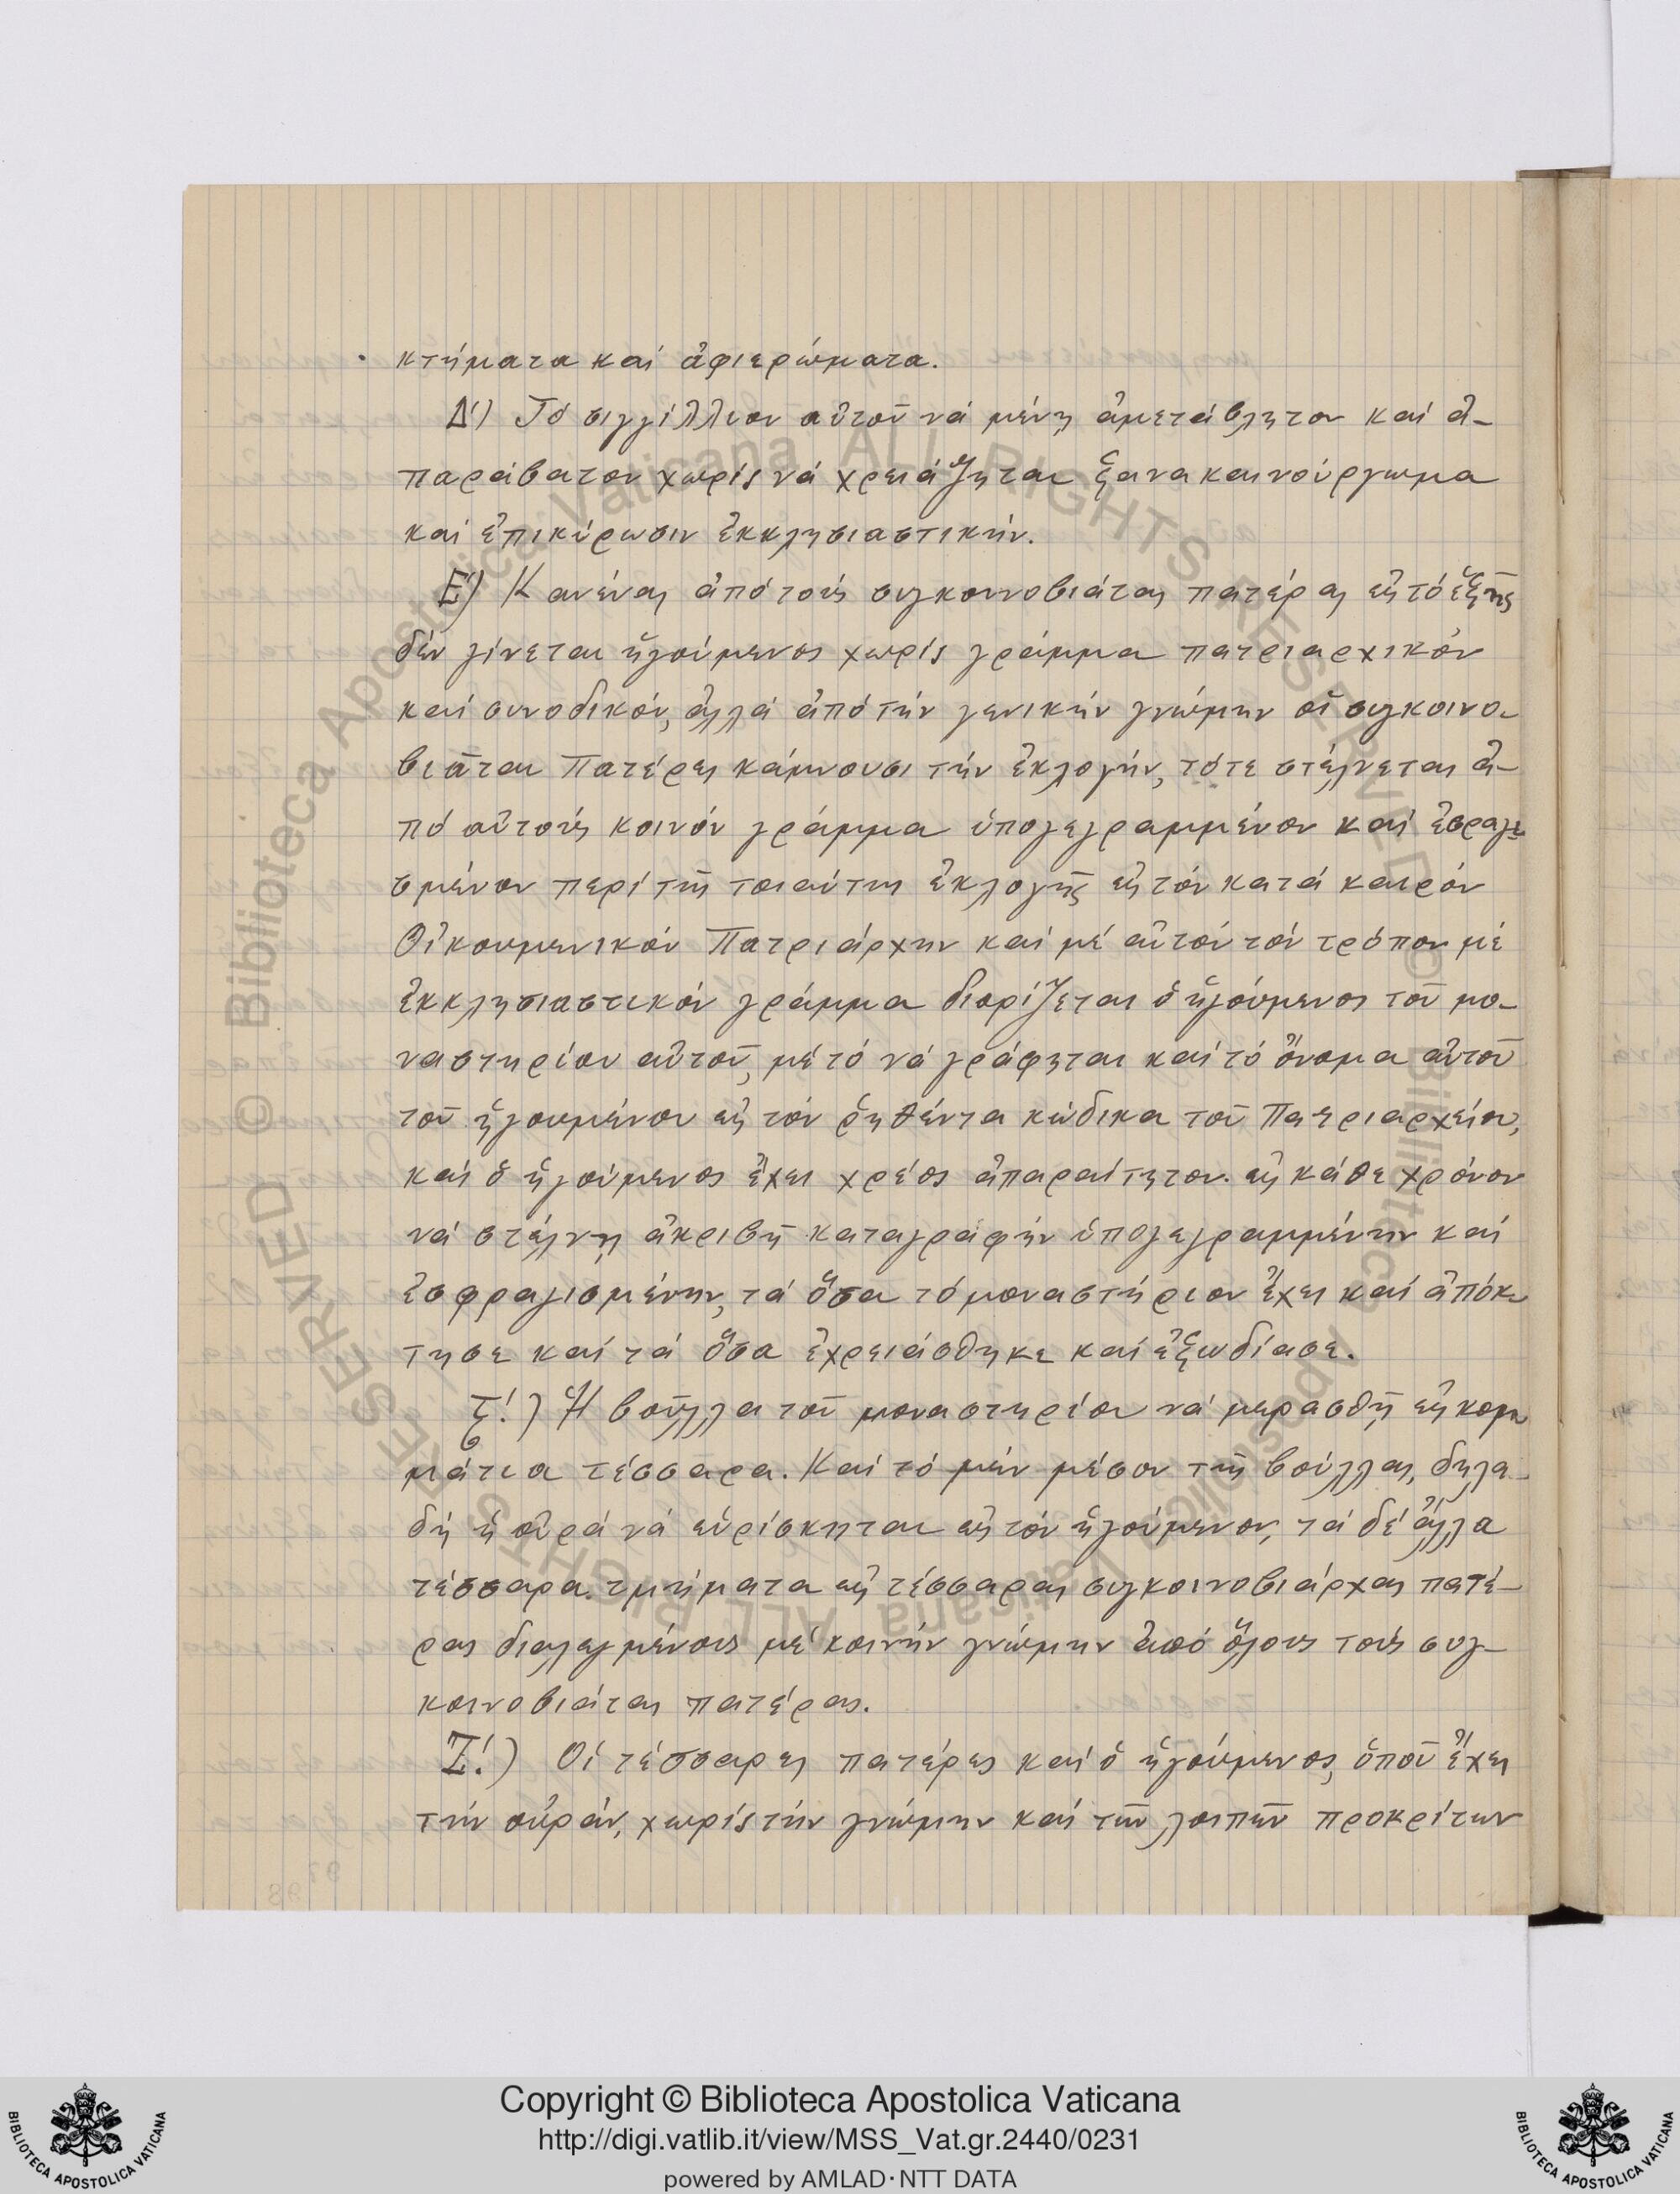 κτήματα καί ἀφιερώματα.
Δ΄) Τό σιγγίλλιον αὐτοῦ νά μένῃ ἀμετάβλητον καί ἀ-
παράβατον χωρίς νά χρειάζηται ξανακαινούργωμα
καί ἐπικύρωσιν ἐκκλησιαστικήν.
Ε΄) Κανένας ἀπό τούς συγκοινοβιάτας πατέρας εἰς τό ἑξῆς
δέν γίνεται ἡγούμενος χωρίς γράμμα πατριαρχικόν
καί συνοδικόν, ἀλλά ἀπό τήν γενικήν γνώμην οἱ συγκοινο-
βιᾶται Πατέρες κάμνουσι τήν ἐκλογήν, τότε στέλνεται ἀ-
πό αὐτούς κοινόν γράμμα ὑπογεγραμμένον καί ἐσφραγι-
σμένον περί τῆς τοιαύτης ἐκλογῆς εἰς τόν κατά καιρόν
Οἰκουμενικόν Πατριάρχην καί μέ αὐτόν τόν τρόπον μέ
ἐκκλησιαστικόν γράμμα διορίζεται ὁ ἡγούμενος τοῦ μο-
ναστηρίου αὐτοῦ, μέ τό νά γράφηται καί τό ὄνομα αὐτοῦ
τοῦ ἡγουμένου εἰς τόν ῥηθέντα κώδικα τοῦ Πατριαρχείου,
καί ὁ ἡγούμενος ἔχει χρέος ἀπαραίτητον εἰς κάθε χρόνον
νά στέλνῃ ἀκριβῆ καταγραφήν ὑπογεγραμμένην καί
ἐσφραγισμένην, τά ὅσα τό μοναστήριον ἔχει καί ἀπόκ-
τησε καί τά ὅσα ἐχρειάσθηκε καί ἐξωδίασε.
Ϛ΄.) Ἡ βοῦλλα τοῦ μοναστηρίου νά μερασθῇ εἰς κομ-
μάτια τέσσαρα. Καί τό μέν μέσον τῆς βούλλας, δηλα-
δή ἡ οὐρά νά εὑρίσκηται εἰς τόν ἡγούμενον, τά δέ ἄλλα
τέσσαρα τμήματα εἰς τέσσαρας συγκοινοβιάρχας πατέ-
ρας διαλεγμένους μέ κοινήν γνώμην ἀπό ὅλους τούς συγ-
κοινοβιάτας πατέρας.
Ζ΄.) Οἱ τέσσαρες πατέρες καί ὁ ἡγούμενος, ὁποῦ ἔχει
τήν οὐράν, χωρίς τήν γνώμην καί τῶν λοιπῶν προκρίτων
Copyright © Biblioteca Apostolica Vaticana
http://digi.vatlib.it/view/MSS_Vat.gr.2440/0231
powered by AMLAD・NTT DATA
BIBLIOTECA APOSTOLICA VATICANA
BIBLIOTECA APOSTOLICA VATICANA
© Biblioteca Apostolica Vaticana ALL RIGHTS RESERVED
© Biblioteca Apostolica Vaticana ALL RIGHTS RESERVED